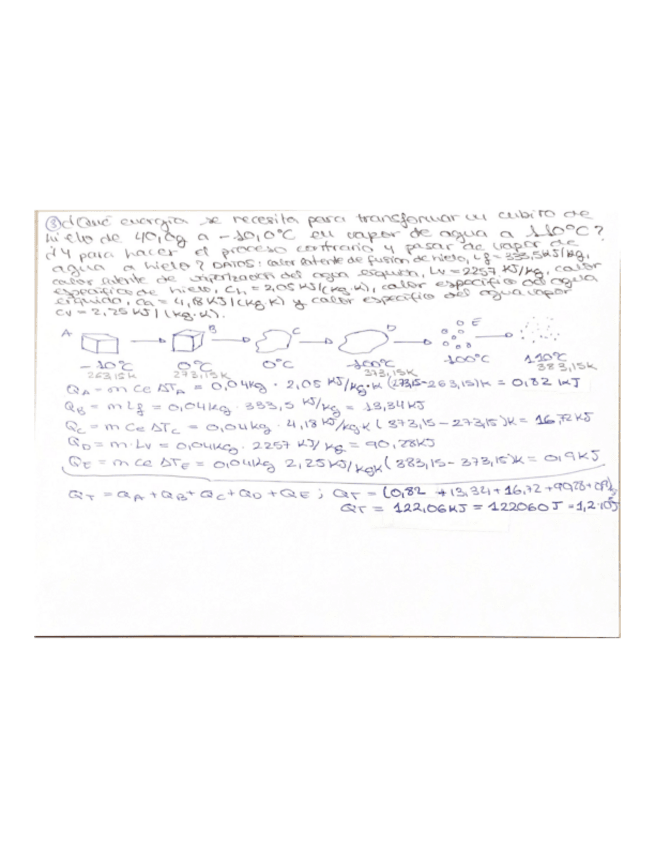 ③ ¿Qué energía se necesita para transformar un cubito de
hielo de 40,0g a -10,0°C en vapor de agua a 110°C?
¿Y para hacer el proceso contrario y pasar de vapor de
agua a hielo? Datos: calor latente de fusión de hielo, Lf = 333,5KJ/kg,
calor latente de vaporización del agua líquida, Lv = 2257 KJ/kg, calor
específico de hielo, Ch = 2,05 KJ/(kg.K), calor específico del agua
líquida, Ca = 4,18 KJ/(kg K) y calor específico del agua vapor
Cv = 2,25 KJ/(kg.K).
A B C D E
-10°C 0°C 0°C 100°C 100°C 110°C
263,15K 273,15K 373,15K 383,15K
QA = m Ce ΔTA = 0,04kg · 2,05 KJ/kg·K (273,15-263,15)K = 0,82 KJ
QB = m Lf = 0,04kg · 333,5 KJ/kg = 13,34KJ
QC = m Ce ΔTC = 0,04kg · 4,18 KJ/kgK (373,15-273,15)K = 16,72KJ
QD = m·Lv = 0,04kg · 2257 KJ/kg = 90,28KJ
QE = m Ce ΔTE = 0,04kg 2,25 KJ/kgK (383,15-373,15)K = 0,9KJ
QT = QA+QB+QC+QD+QE; QT = (0,82 +13,34+16,72+90,28+0,9)
QT = 122,06KJ = 122060J = 1,2·10⁵J